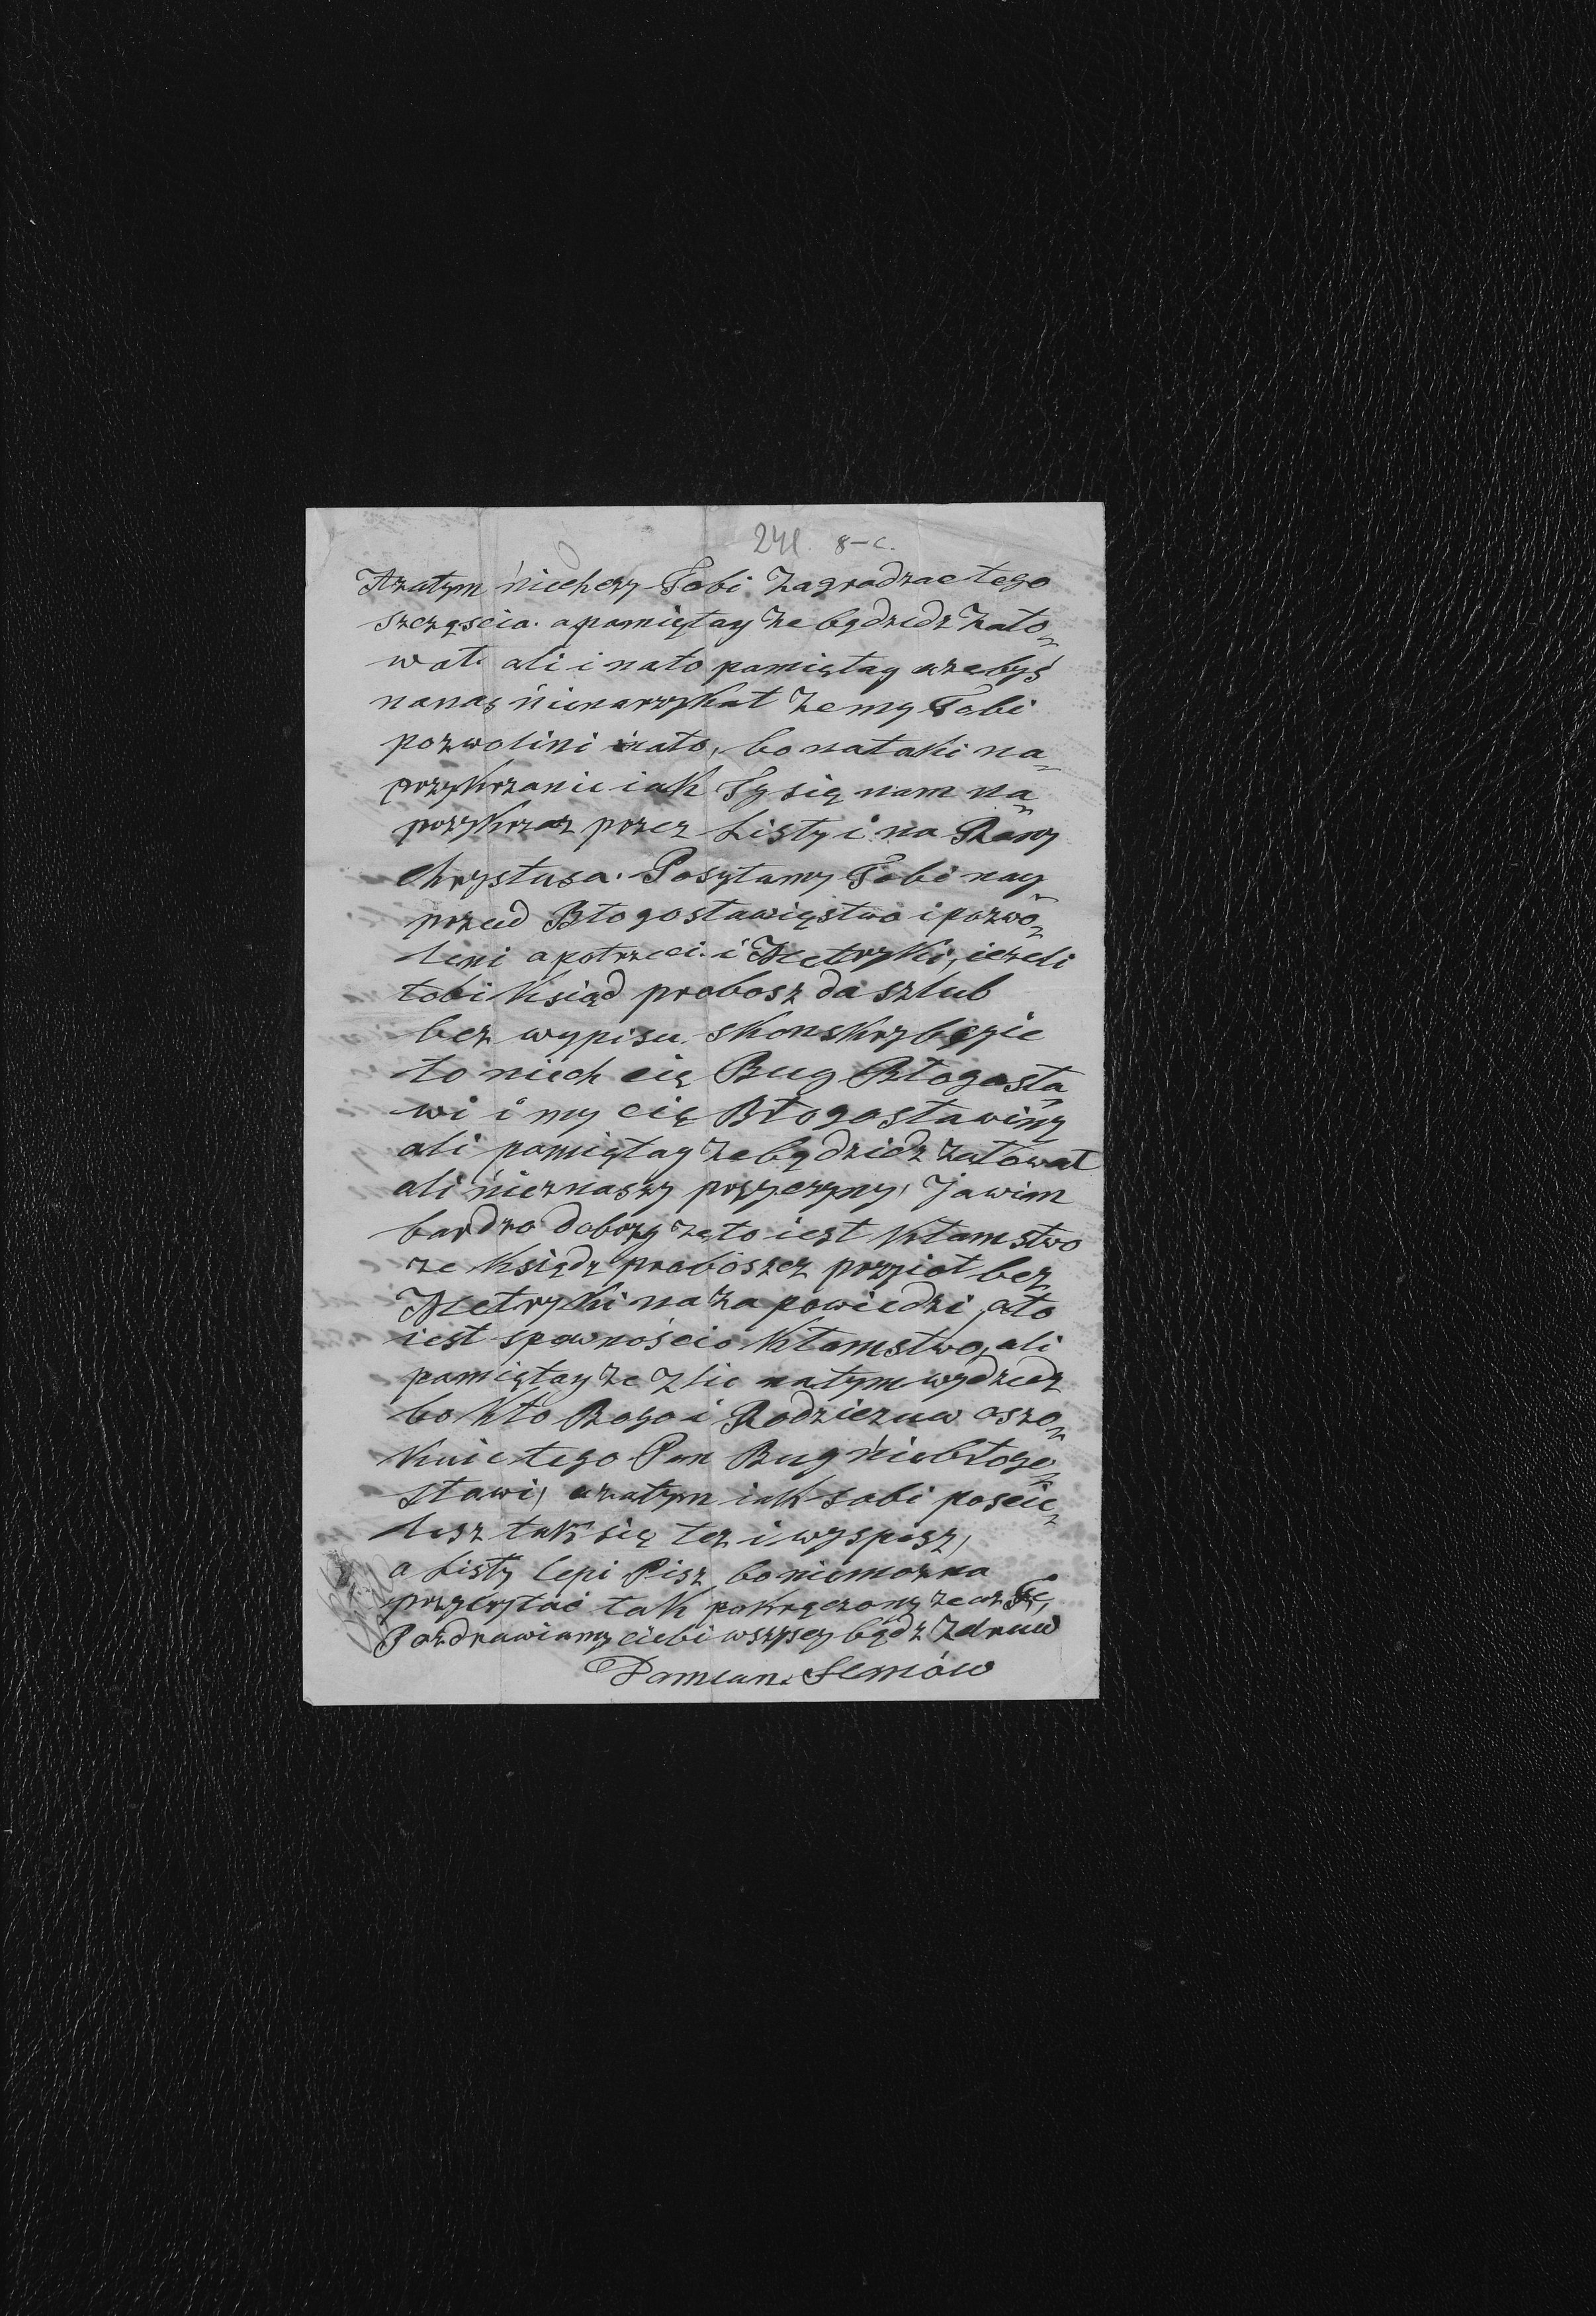 241. 8-c.
Azatym niechcy Tobi zagradzac tego
szczęscia. apamiętay że będzidz żało„
wał. ali i nato pamiętay azebyś
nanas nienarzykał żemy Tobi
pozwolini nato, bo nataki na„
przykrzanie iak Ty się nam na„
przykrzaz przez Listy i na Rany
Chrystusa. Posyłamy Tobi nay„
przud Błogosławięstwo i pozwo„
lini apotrzeci. i Metryki, ieżeli
tobi Ksiąd probosz da szlub
bez wypisu skonskrzbcyie
to niech cię Bug Błogosła„
wi i my cię Błogosławimy
ali pamiętay żebędzidz żałował
ali nieznaszy przyczyny, Ja wim
bardzo dobrzy żeto iest Kłamstwo
że Ksiądz proboszcz przyioł bez
Metryki na zapowiedzi, ato
iest spewnościo Kłamstwo, ali
pamiętay że zlie natym wydziedz
bo Kto Boga i Rodziczuw oszo„
kuie tego Pan Bug niebłogo„
sławi, azatym iak sobi poscie„
lisz tak się tez i wyspisz,
a Listy lepi Pisz bo niemozna
przyczytać tak pokręczony
Pozdrawiamy ciebi wszyscy bądz Zdruw
Damian. Slemów